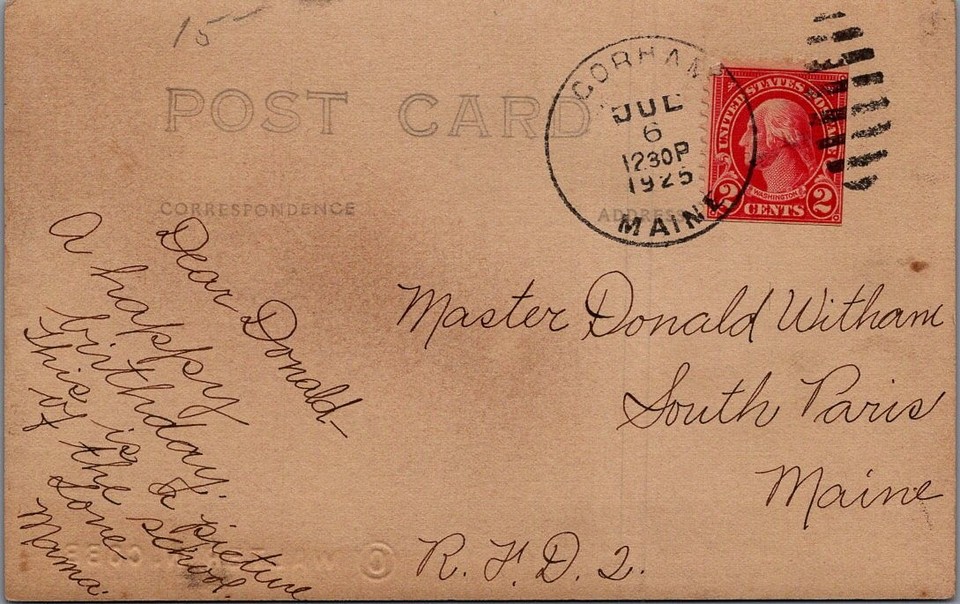 15
POST CARD
CORRESPONDENCE
ADDRESS
GORHAM
JUL
6
1230P
1925
MAINE
UNITED STATES POSTAGE
WASHINGTON
2 CENTS 2
Dear Donald—
A happy
birthday.
This is a picture
of the school.
Love
Mama.
Master Donald Witham
South Paris
Maine
R. F. D. 2.
©